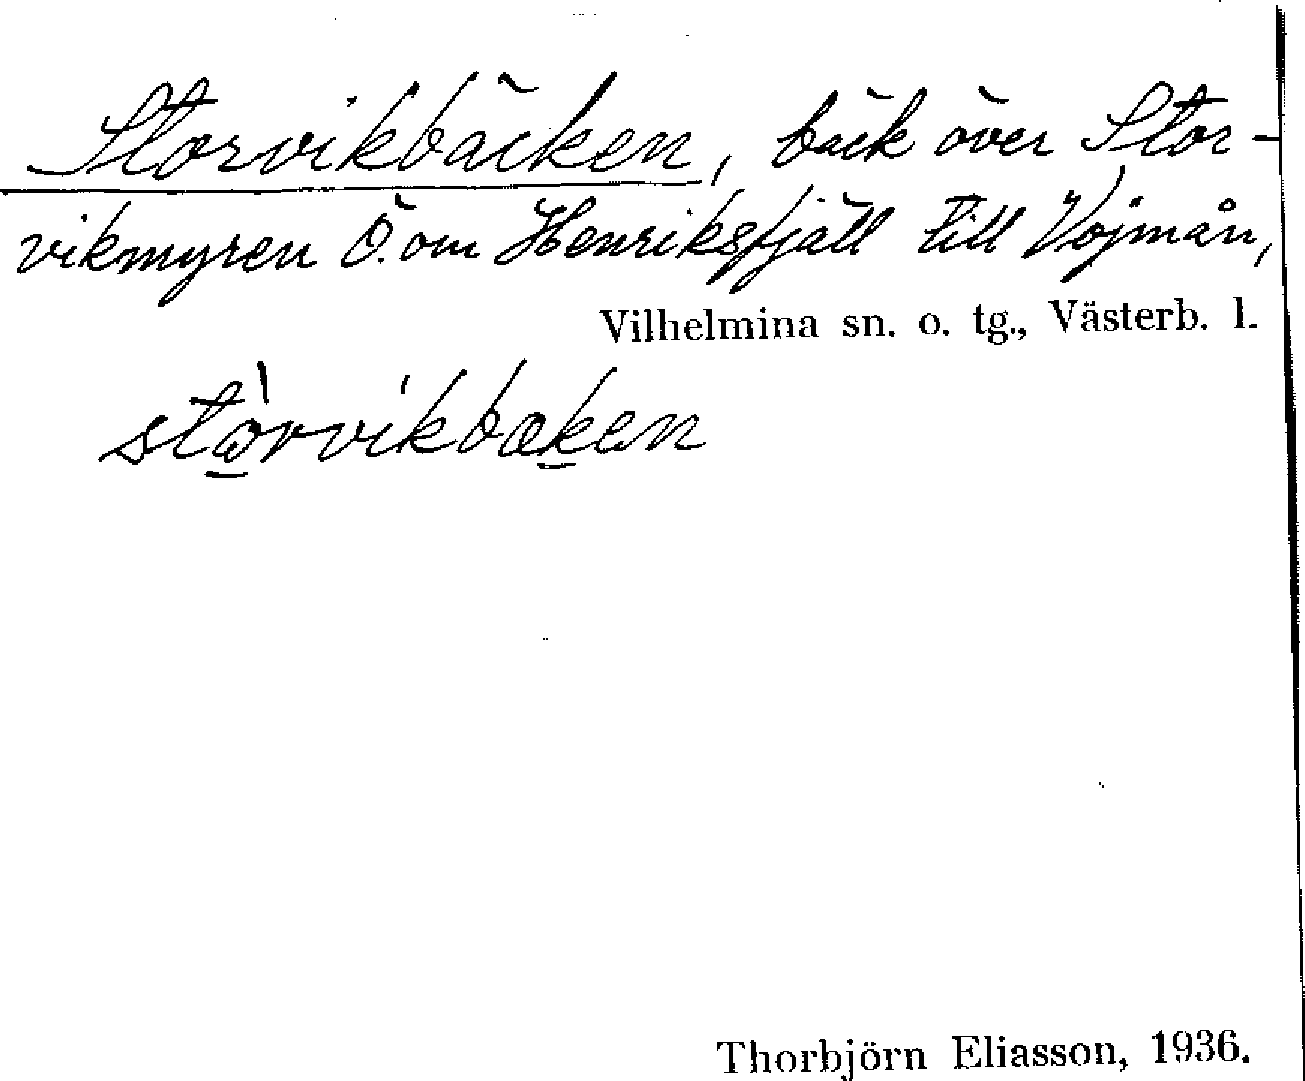 Storvikbäcken, bäck över Stor-
vikmyren Ö. om Henriksfjäll till Vojmån,
Vilhelmina sn. o. tg., Västerb. l.
Thorbjörn Eliasson, 1936.